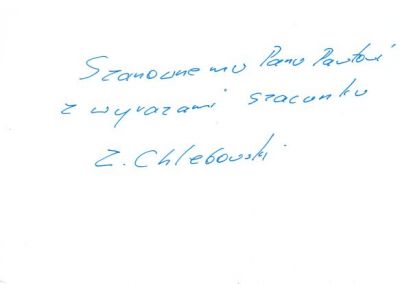 Szanownemu Panu Pawłowi
z wyrazami szacunku
Z. Chlebowski